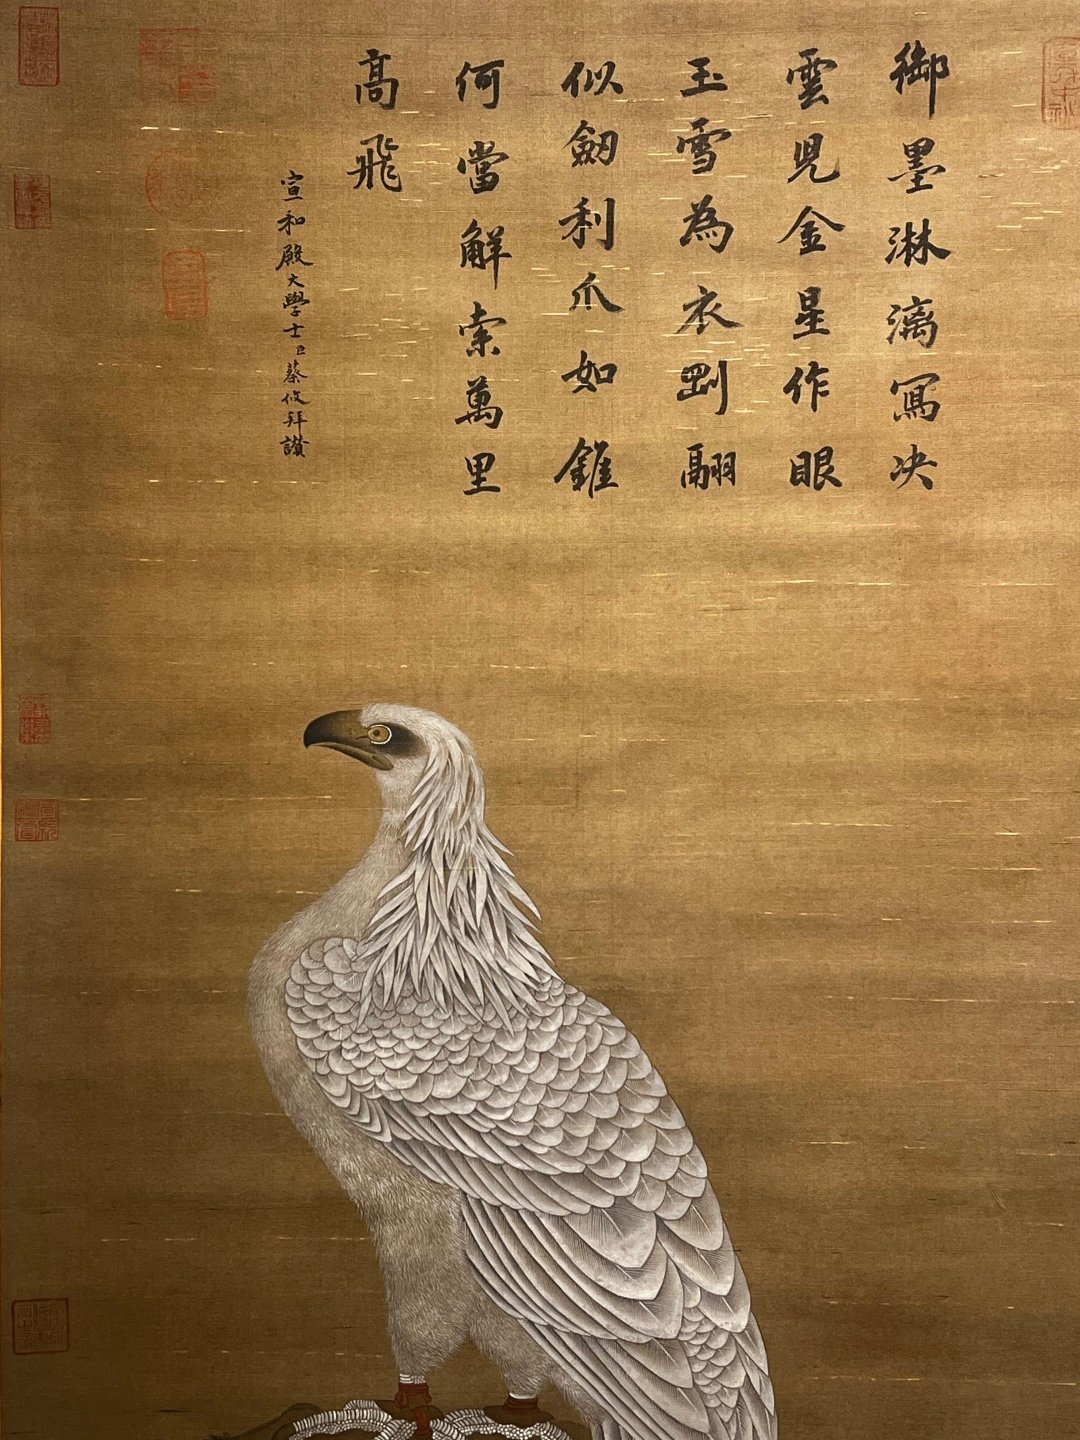 御墨淋漓寫决
雲兒金星作眼
玉雪為衣剛翮
似劔利爪如錐
何當解索萬里
高飛
宣和殿大學士臣蔡攸拜讃